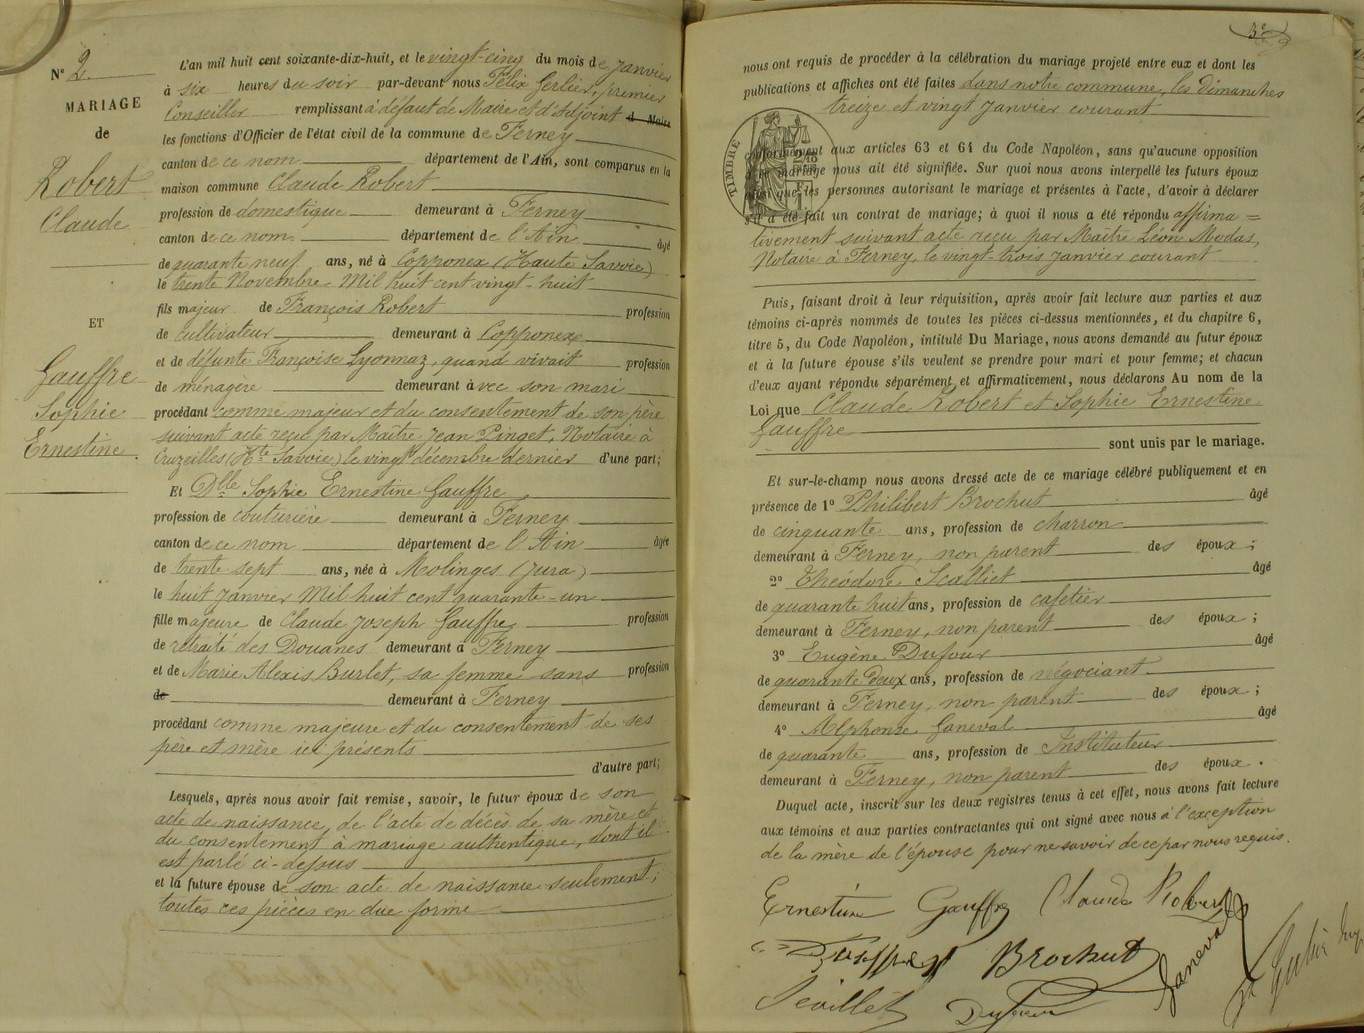 N° 2
MARIAGE
de
Robert
Claude
ET
Gauffre
Sophie
Ernestine
L'an mil huit cent soixante-dix-huit, et le vingt-cinq du mois de janvier
à six heures du soir par-devant nous Félix Gerlier, premier
Conseiller remplissant à défaut de Maire et d'Adjoint d Maire
les fonctions d'Officier de l'état civil de la commune de Ferney
canton de ce nom département de l'Ain, sont comparus en la
maison commune Claude Robert
profession de domestique demeurant à Ferney
canton de ce nom département de l'Ain âgé
de quarante neuf ans, né à Copponex (Haute Savoie)
le trente Novembre Mil huit cent vingt-huit
fils majeur de François Robert profession
de cultivateur demeurant à Copponex
et de défunte Françoise Lyonnaz, quand vivait profession
de ménagère demeurant avec son mari
procédant comme majeur et du consentement de son père
suivant acte reçu par Maître Jean Pinget, Notaire à
Cruzeilles (Hte Savoie) le vingt décembre dernier d'une part;
Et Dlle Sophie Ernestine Gauffre
profession de couturière demeurant à Ferney
canton de ce nom département de l'Ain âgée
de trente sept ans, née à Molinges (Jura)
le huit janvier Mil huit cent quarante-un
fille majeure de Claude Joseph Gauffre profession
de retraité des Douanes demeurant à Ferney
et de Marie Alexis Burlet, sa femme sans profession
de demeurant à Ferney
procédant comme majeure et du consentement de ses
père et mère ici présents
d'autre part;
Lesquels, après nous avoir fait remise, savoir, le futur époux de son
acte de naissance, de l'acte de décès de sa mère et
du consentement à mariage authentique, dont il
est parlé ci-dessus
et la future épouse de son acte de naissance seulement;
toutes ces pièces en due forme
3e
nous ont requis de procéder à la célébration du mariage projeté entre eux et dont les
publications et affiches ont été faites dans notre commune, les dimanches
treize et vingt janvier courant
TIMBRE
conformément aux articles 63 et 64 du Code Napoléon, sans qu'aucune opposition
mariage nous ait été signifiée. Sur quoi nous avons interpellé les futurs époux
que les personnes autorisant le mariage et présentes à l'acte, d'avoir à déclarer
s'il a été fait un contrat de mariage; à quoi il nous a été répondu affirma=
tivement suivant acte reçu par Maître Léon Modas,
Notaire à Ferney, le vingt-trois janvier courant
Puis, faisant droit à leur réquisition, après avoir fait lecture aux parties et aux
témoins ci-après nommés de toutes les pièces ci-dessus mentionnées, et du chapitre 6,
titre 5, du Code Napoléon, intitulé Du Mariage, nous avons demandé au futur époux
et à la future épouse s'ils veulent se prendre pour mari et pour femme; et chacun
d'eux ayant répondu séparément et affirmativement, nous déclarons Au nom de la
Loi que Claude Robert et Sophie Ernestine
Gauffre
sont unis par le mariage.
Et sur-le-champ nous avons dressé acte de ce mariage célébré publiquement et en
présence de 1° Philibert Brochut âgé
de cinquante ans, profession de charron
demeurant à Ferney, non parent des époux;
2° Théodore Scalliet âgé
de quarante huit ans, profession de cafetier
demeurant à Ferney, non parent des époux;
3° Eugène Dufour âgé
de quarante deux ans, profession de négociant
demeurant à Ferney, non parent des époux;
4° Alphonse Ganeval âgé
de quarante ans, profession de Instituteur
demeurant à Ferney, non parent des époux.
Duquel acte, inscrit sur les deux registres tenus à cet effet, nous avons fait lecture
aux témoins et aux parties contractantes qui ont signé avec nous à l'exception
de la mère de l'épouse pour ne savoir de ce par nous requis.
Ernestine Gauffre Claude Robert
Brochut Ganeval
Dufour